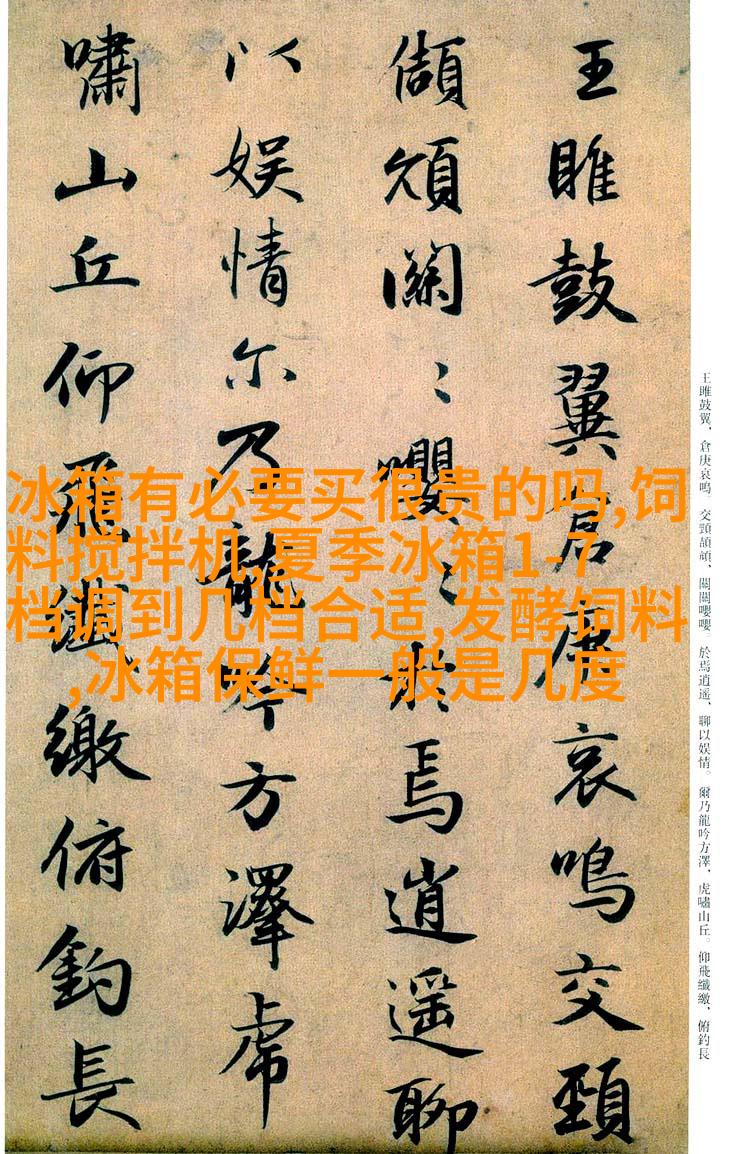 王雎鼓翼倉庚哀鳴交頸
頡頏關〻嚶〻於焉逍遥聊
以娱情尔乃龍吟方澤虎
嘯山丘仰飛纖繳俯釣長
王雎鼓翼、倉庚哀鳴、交頸頡頏、關關嚶嚶。於焉逍遥、聊以娱情。爾乃龍吟方澤、虎嘯山丘。仰飛纖繳、俯釣長
冰箱有必要买很贵的吗,饲
料搅拌机,夏季冰箱1-7
档调到几档合适,发酵饲料
,冰箱保鲜一般是几度